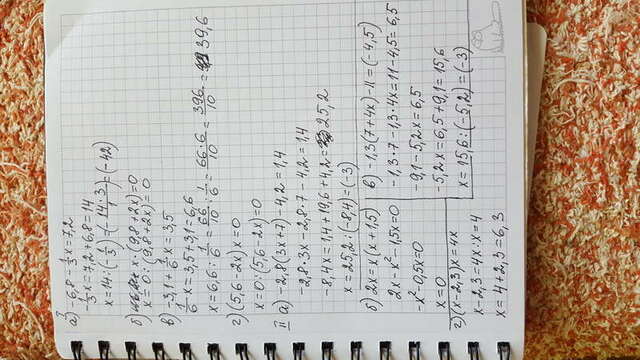 I
а) -6,8 - 1/3 x = 7,2
-1/3 x = 7,2 + 6,8 = 14
x = 14 : (-1/3) = (-14·3/1) = (-42)
б) x·(9,8 + 2x) = 0
x = 0 : (9,8 + 2x) = 0
в) -3,1 + 1/6 x = 3,5
1/6 - x = 3,5 + 3,1 = 6,6
x = 6,6 : 1/6 = 66/10 : 1/6 = 66·6/10 = 396/10 = 39,6
г) (5,6 - 2x) x = 0
x = 0 : (5,6 - 2x) = 0
II а) -2,8(3x + 7) - 4,2 = 1,4
-2,8·3x - 2,8·7 - 4,2 = 1,4
-8,4x = 1,4 + 19,6 + 4,2 = 25,2
x = 25,2 : (-8,4) = (-3)
б) 2x = x(x + 1,5)
2x - x² - 1,5x = 0
-x² - 0,5x = 0
x = 0
г) (x - 2,3)x = 4x
x - 2,3 = 4x : x = 4
x = 4 + 2,3 = 6,3
в) -1,3(7 + 4x) - 11 = (-4,5)
-1,3·7 - 1,3·4x = 11 - 4,5 = 6,5
-9,1 - 5,2x = 6,5
-5,2x = 6,5 + 9,1 = 15,6
x = 15,6 : (-5,2) = (-3)